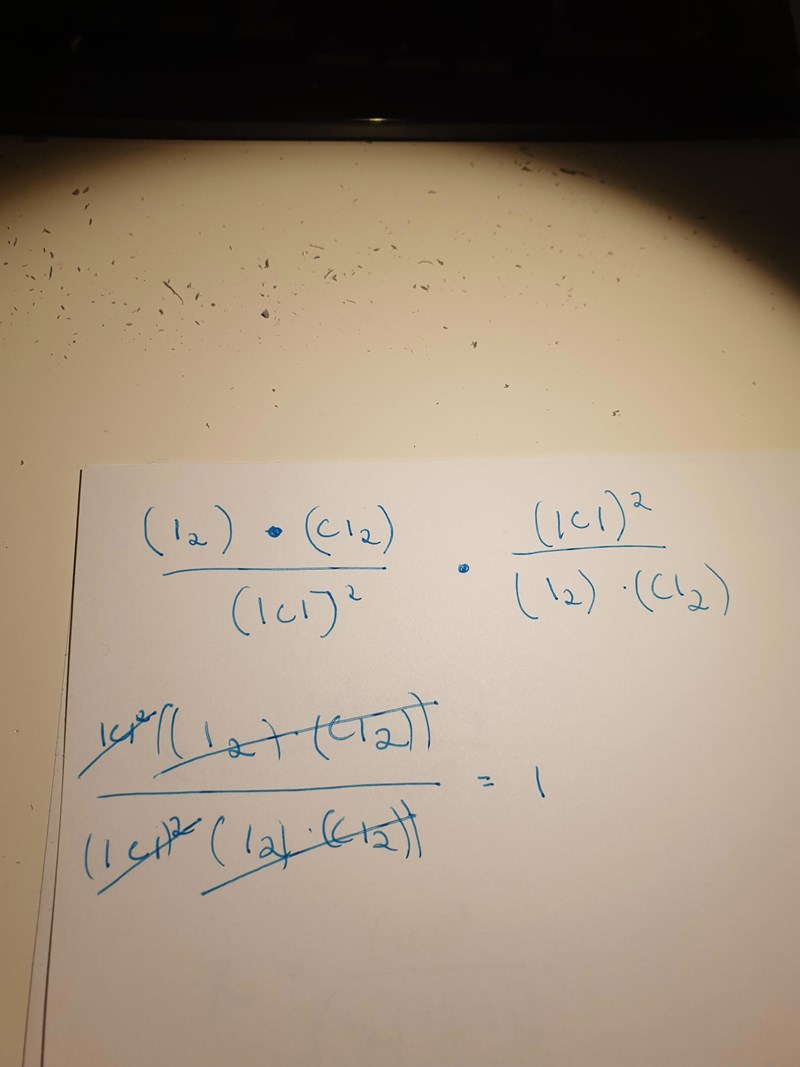 (I₂) • (Cl₂) / (ICl)² • (ICl)² / (I₂) · (Cl₂)
ICl² ((I₂) · (Cl₂)) / (ICl)² (I₂) · (Cl₂)) = 1